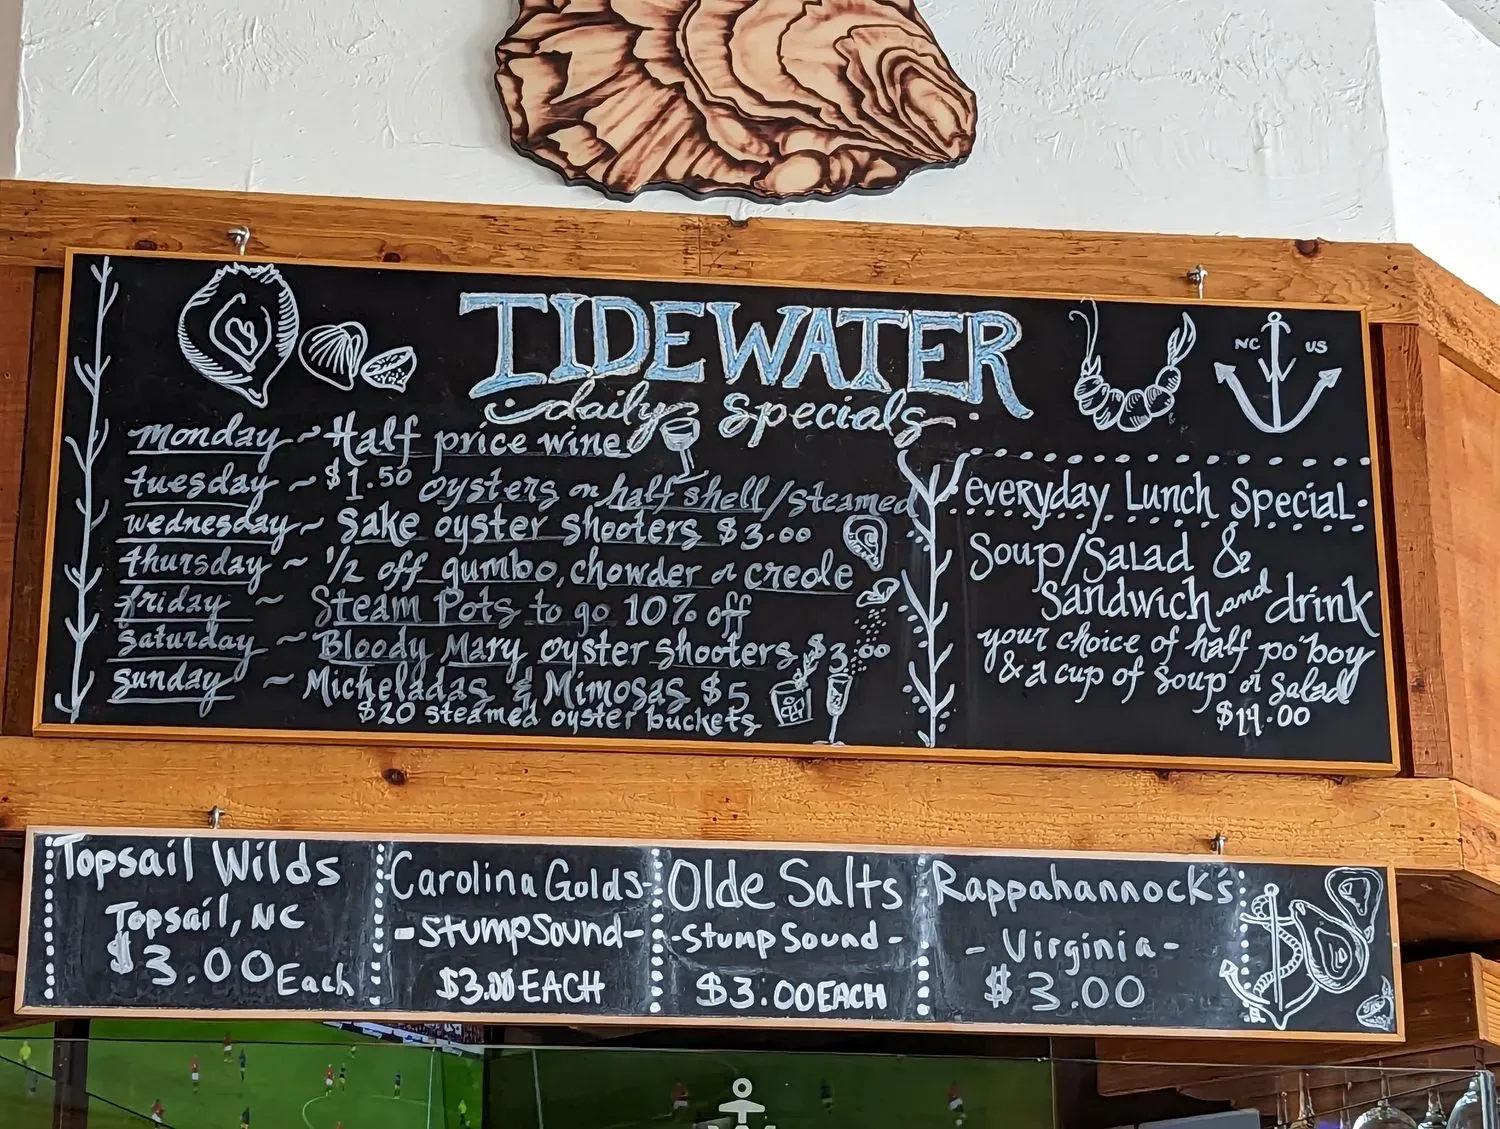 TIDEWATER
daily specials
NC US
monday ~ Half price wine
tuesday ~ $1.50 oysters on half shell/steamed
wednesday ~ Sake oyster shooters $3.00
thursday ~ 1/2 off gumbo, chowder or creole
friday ~ Steam Pots to go 10% off
saturday ~ Bloody Mary oyster shooters $3.00
sunday ~ Micheladas & Mimosas $5
$20 steamed oyster buckets
everyday Lunch Special
Soup/Salad &
Sandwich and drink
your choice of half po'boy
& a cup of soup or salad
$14.00
Topsail Wilds
Topsail, NC
$3.00 Each
Carolina Golds
-Stump Sound-
$3.00 EACH
Olde Salts
-Stump Sound-
$3.00 EACH
Rappahannock's
- Virginia -
$3.00